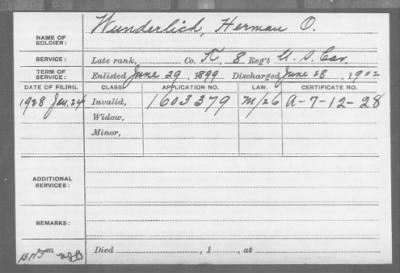 NAME OF SOLDIER: Wunderlich, Herman O.
SERVICE: Late rank, Co. K, 8 Reg't U. S. Cav.
TERM OF SERVICE: Enlisted June 29, 1899, Discharged June 28, 1902
DATE OF FILING. CLASS. APPLICATION NO. LAW. CERTIFICATE NO.
1928 Jan. 24 Invalid, 1603379 M/26 A-7-12-28
Widow,
Minor,
ADDITIONAL SERVICES:
REMARKS:
Died , 1 , at